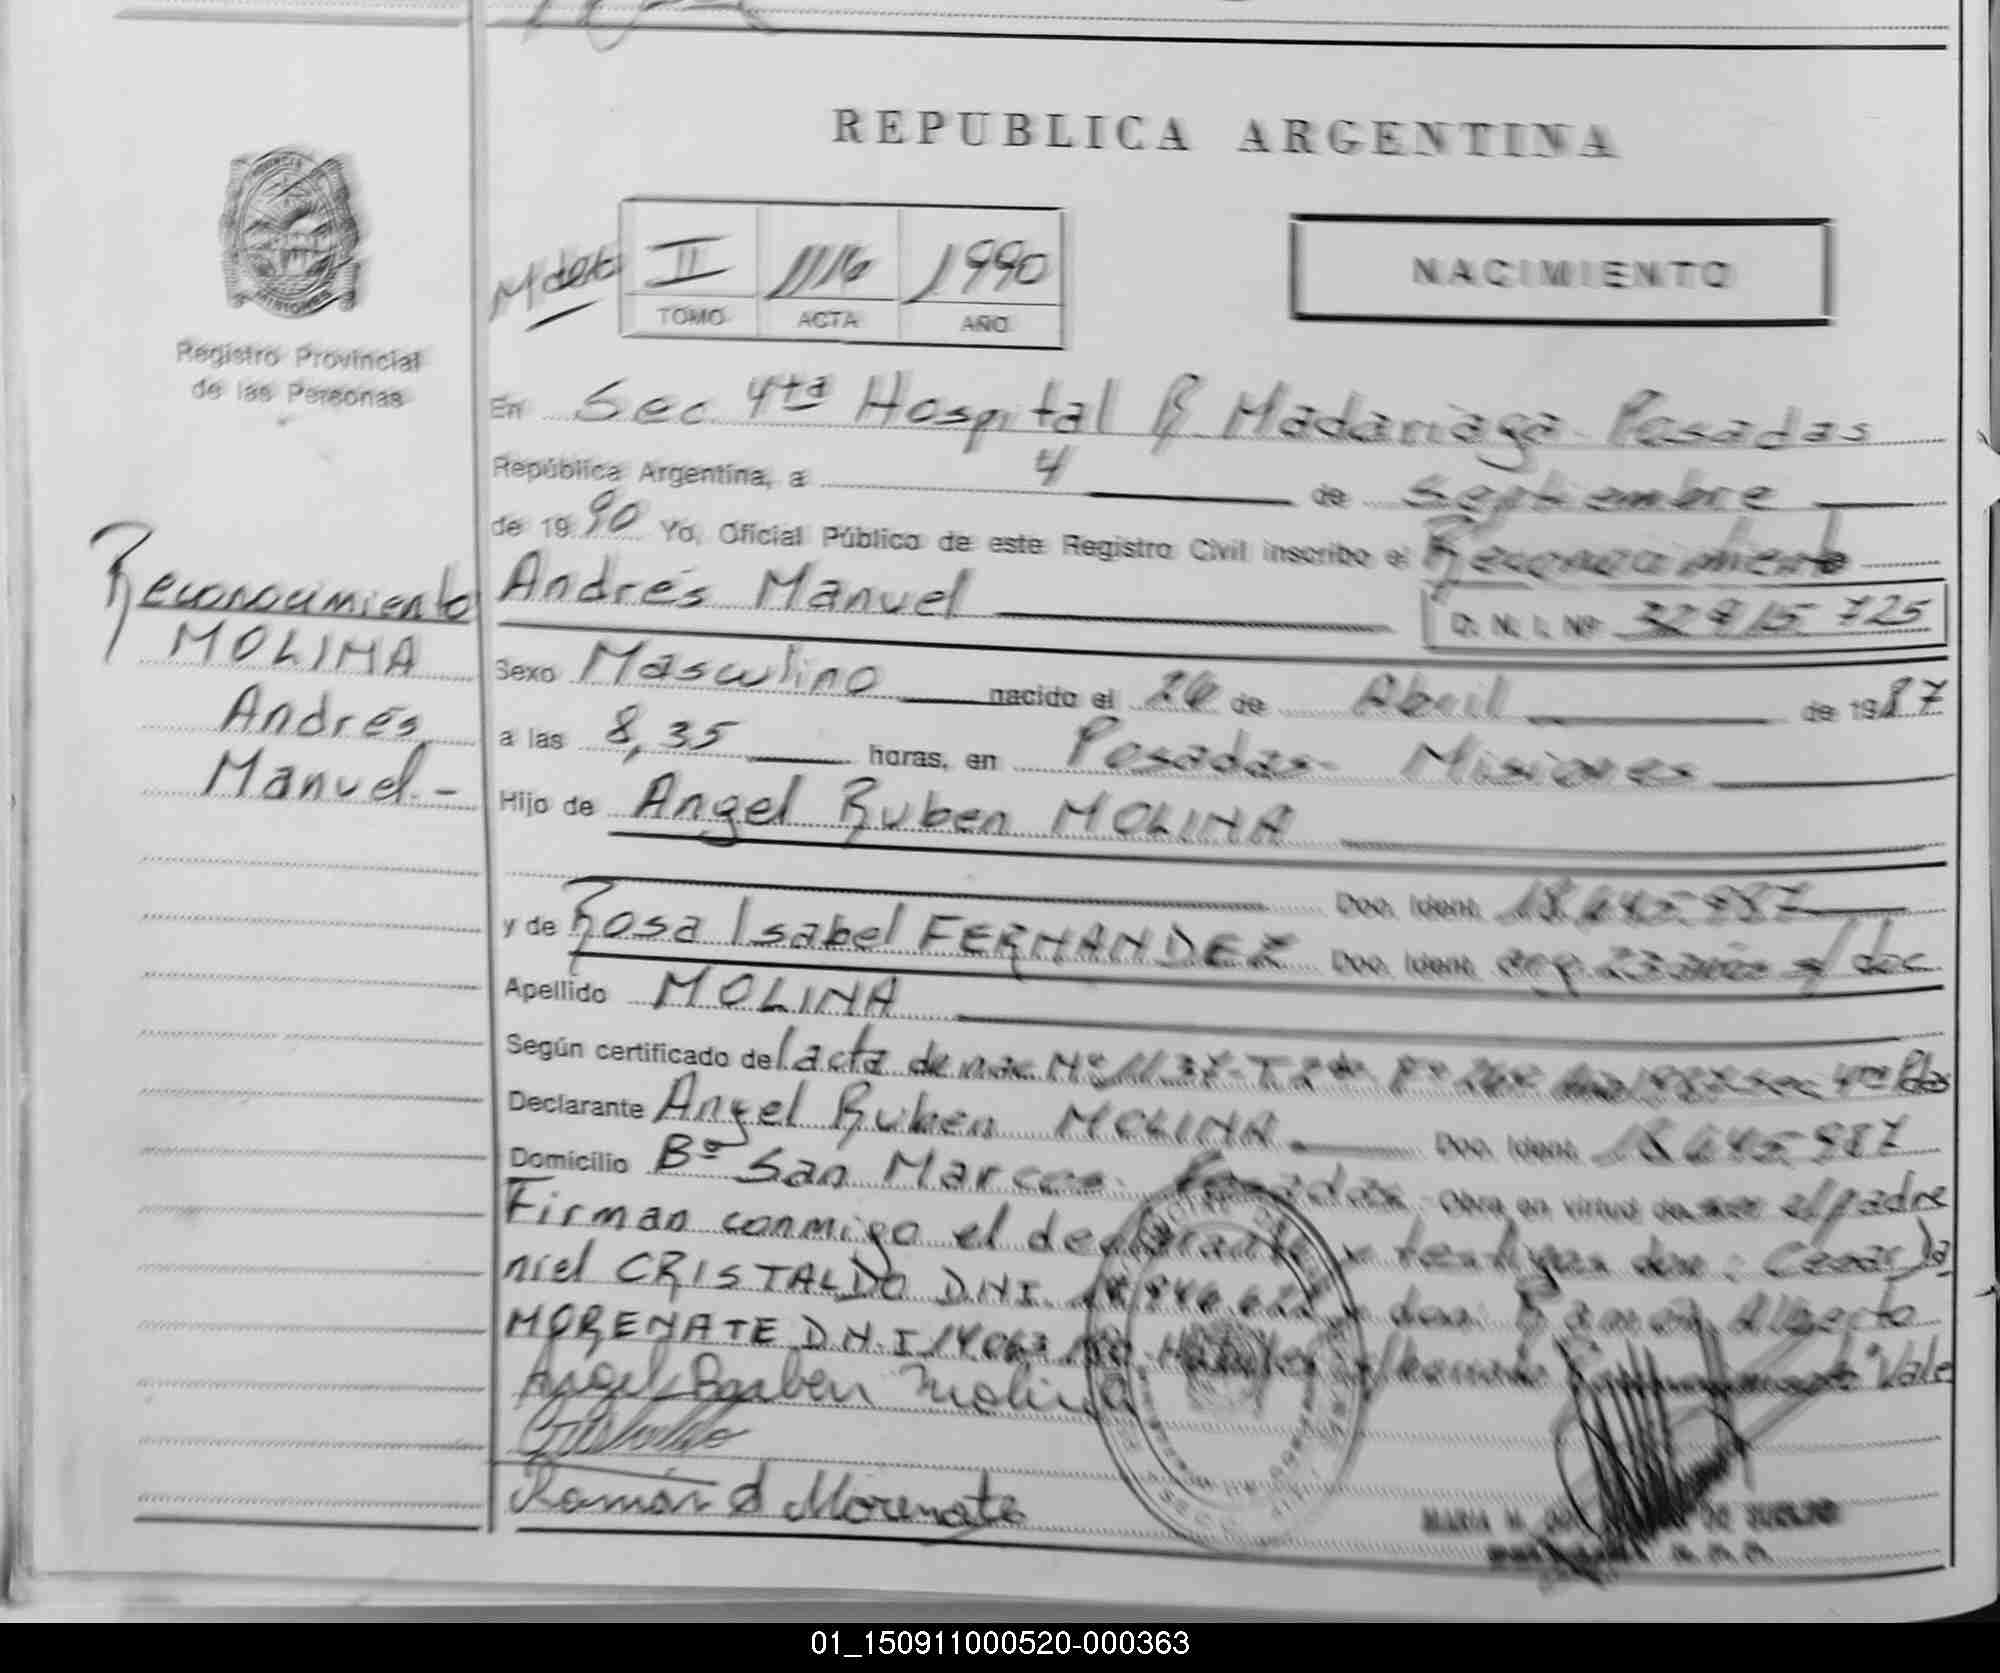 REPUBLICA ARGENTINA
II 1116 1990
TOMO ACTA AÑO
NACIMIENTO
Registro Provincial
de las Personas
En Sec 4ta Hospital R Madariaga Posadas
República Argentina, a 4 de Septiembre
de 1990 Yo, Oficial Público de este Registro Civil inscribo el Reconocimiento
Andrés Manuel D. N. I. Nº
Reconocimiento
MOLINA
Andrés
Manuel.-
Sexo Masculino nacido el de Abril de 1987
a las 8,35 horas, en Posadas Misiones
Hijo de Angel Ruben MOLINA
Doc. Ident.
y de Rosa Isabel FERNANDEZ Doc. Ident. arg. 23 años s/ doc
Apellido MOLINA
Según certificado del acta de nac Nº 1137 4ta Pdas
Declarante Angel Ruben MOLINA Doc. Ident.
Domicilio Bº San Marcos. Posadas Obra en virtud de ser el padre
Firman conmigo el declarante y testigos don: Cesar Da
niel CRISTALDO D.N.I. y don: Ramón Alberto
MORENATE D.N.I Vale
Angel Ruben Molina
Ramón A Morenate
01_150911000520-000363